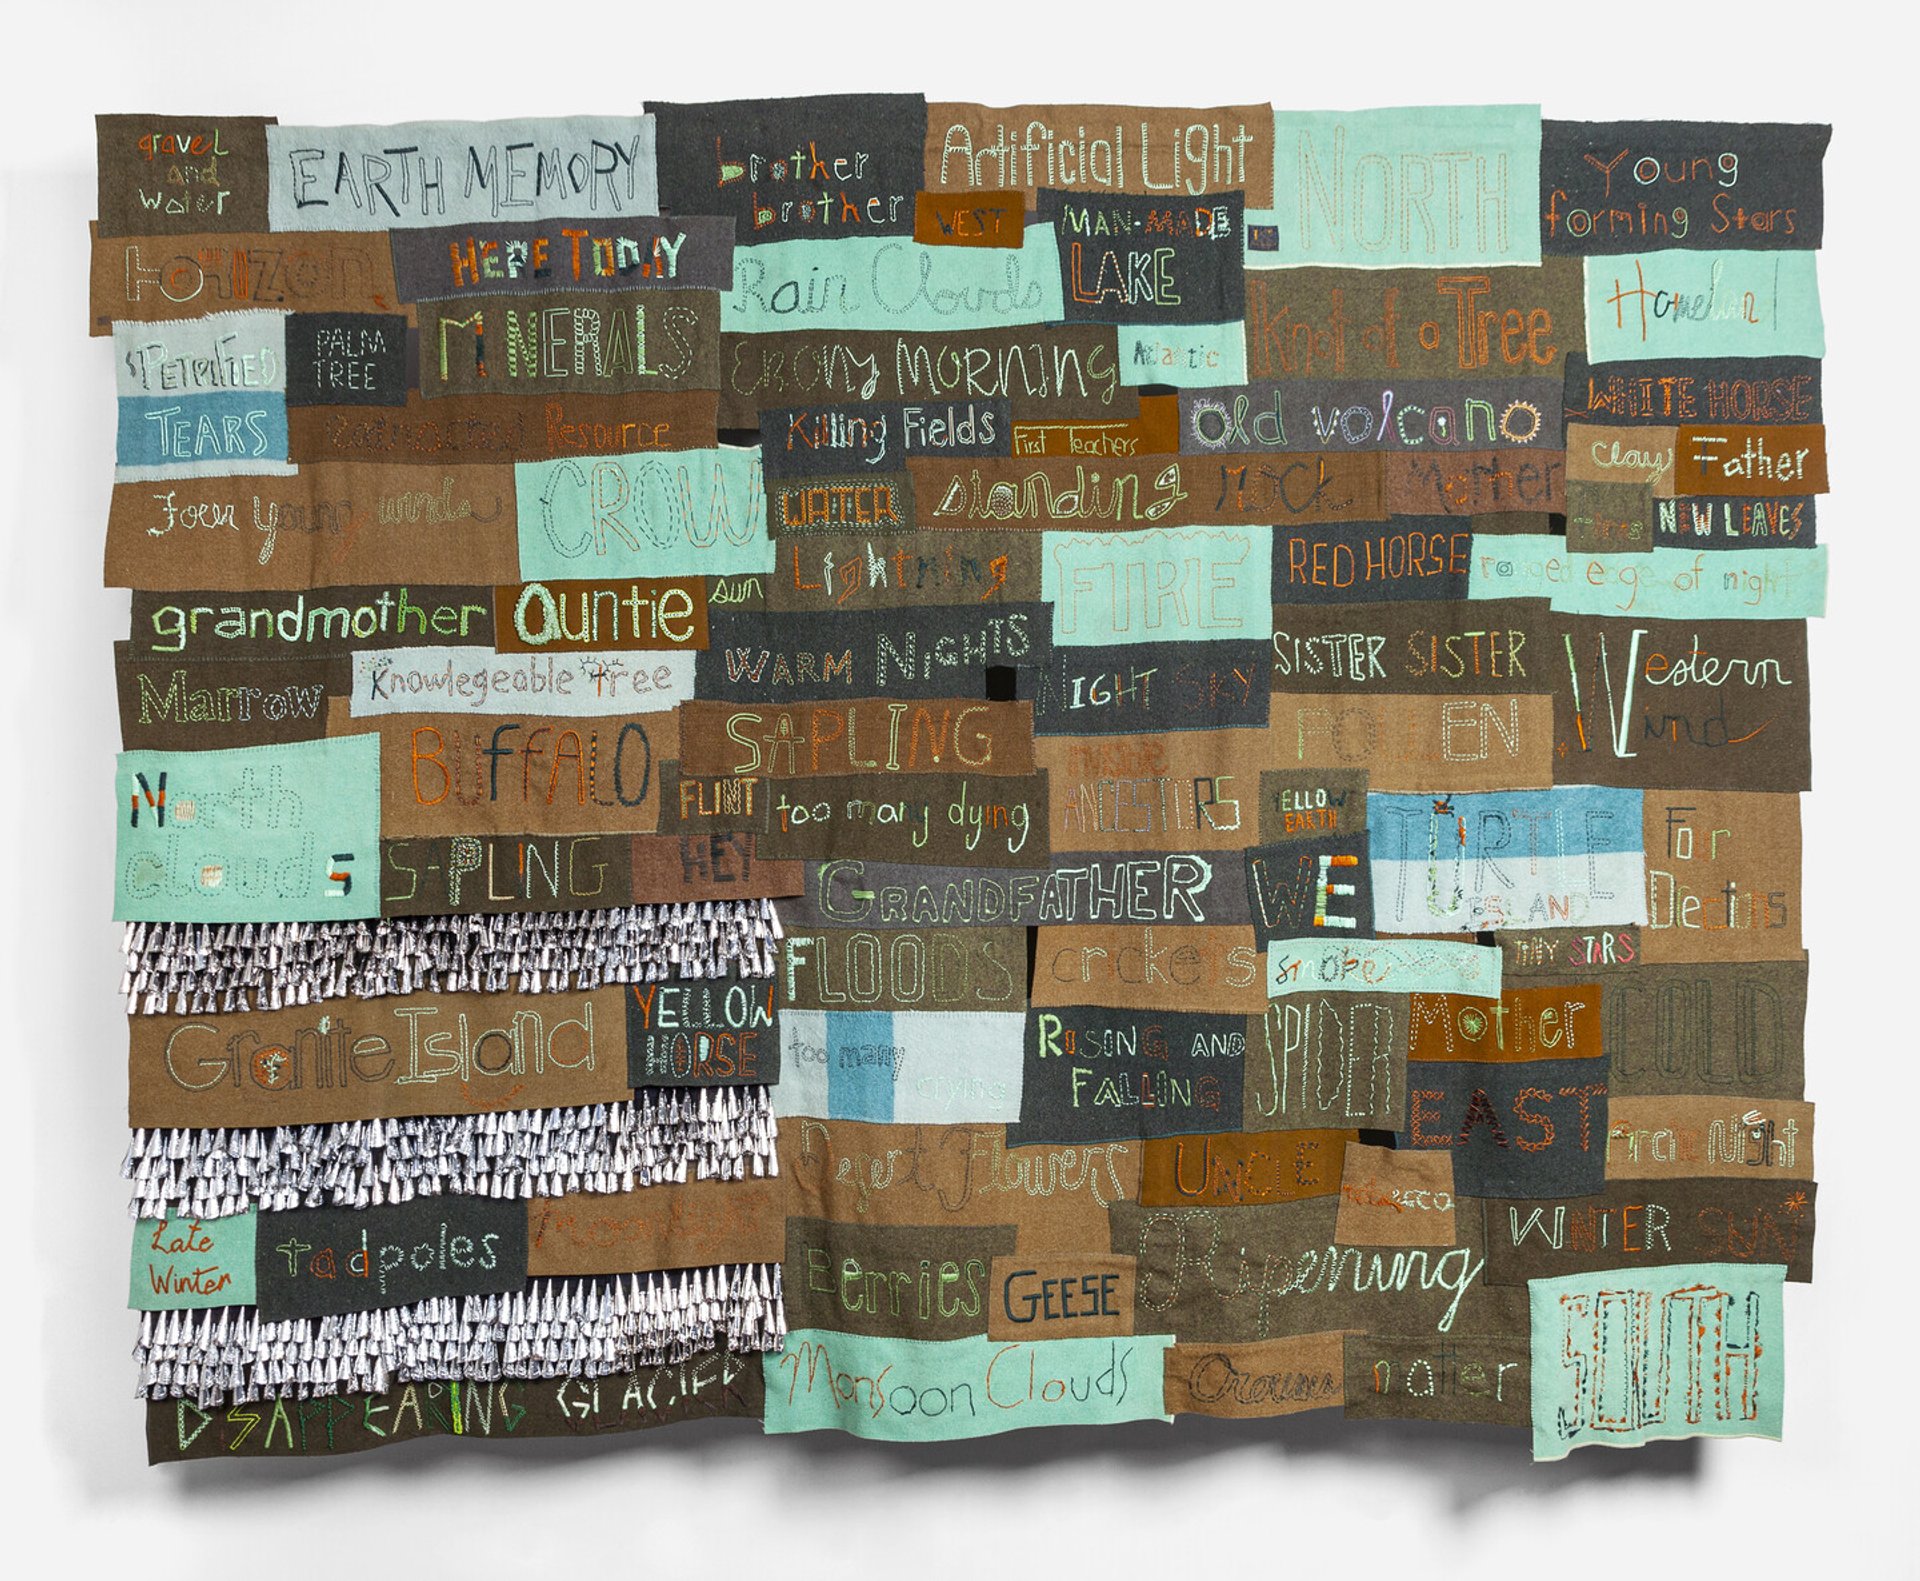 gravel
and
Water
EARTH MEMORY
brother
brother
Artificial Light
NORTH
Young
forming Stars
Horizon
HERE TODAY
WEST
MAN-MADE
LAKE
Rain Clouds
Knot of a Tree
PETRIFIED
PALM
TREE
MINERALS
EBONY MORNING
Atlantic
WHITE HORSE
TEARS
Resource
Killing Fields
First Teachers
old volcano
clay
Father
Four young winds
CROW
WATER
standing rock
Mother
NEW LEAVES
Lightning
FIRE
RED HORSE
ragged edge of night
grandmother
auntie
sun
WARM NIGHTS
NIGHT SKY
SISTER SISTER
Western
Wind
Marrow
Knowlegeable Tree
BUFFALO
SAPLING
POLLEN
North
clouds
FLINT
too many dying
ANCESTORS
YELLOW
EARTH
TURTLE
ISLAND
For
SAPLING
HEY
GRANDFATHER
WE
FLOODS
crickets
smoke
TINY STARS
Granite Island
YELLOW
HORSE
too many
crying
RISING AND
FALLING
SPIDER
Mother
COLD
EAST
Desert Flowers
UNCLE
Arctic Night
tobacco
Late
Winter
tadpoles
Berries
GEESE
Ripening
WINTER SUN
SOUTH
DISAPPEARING GLACIER
Monsoon Clouds
matter